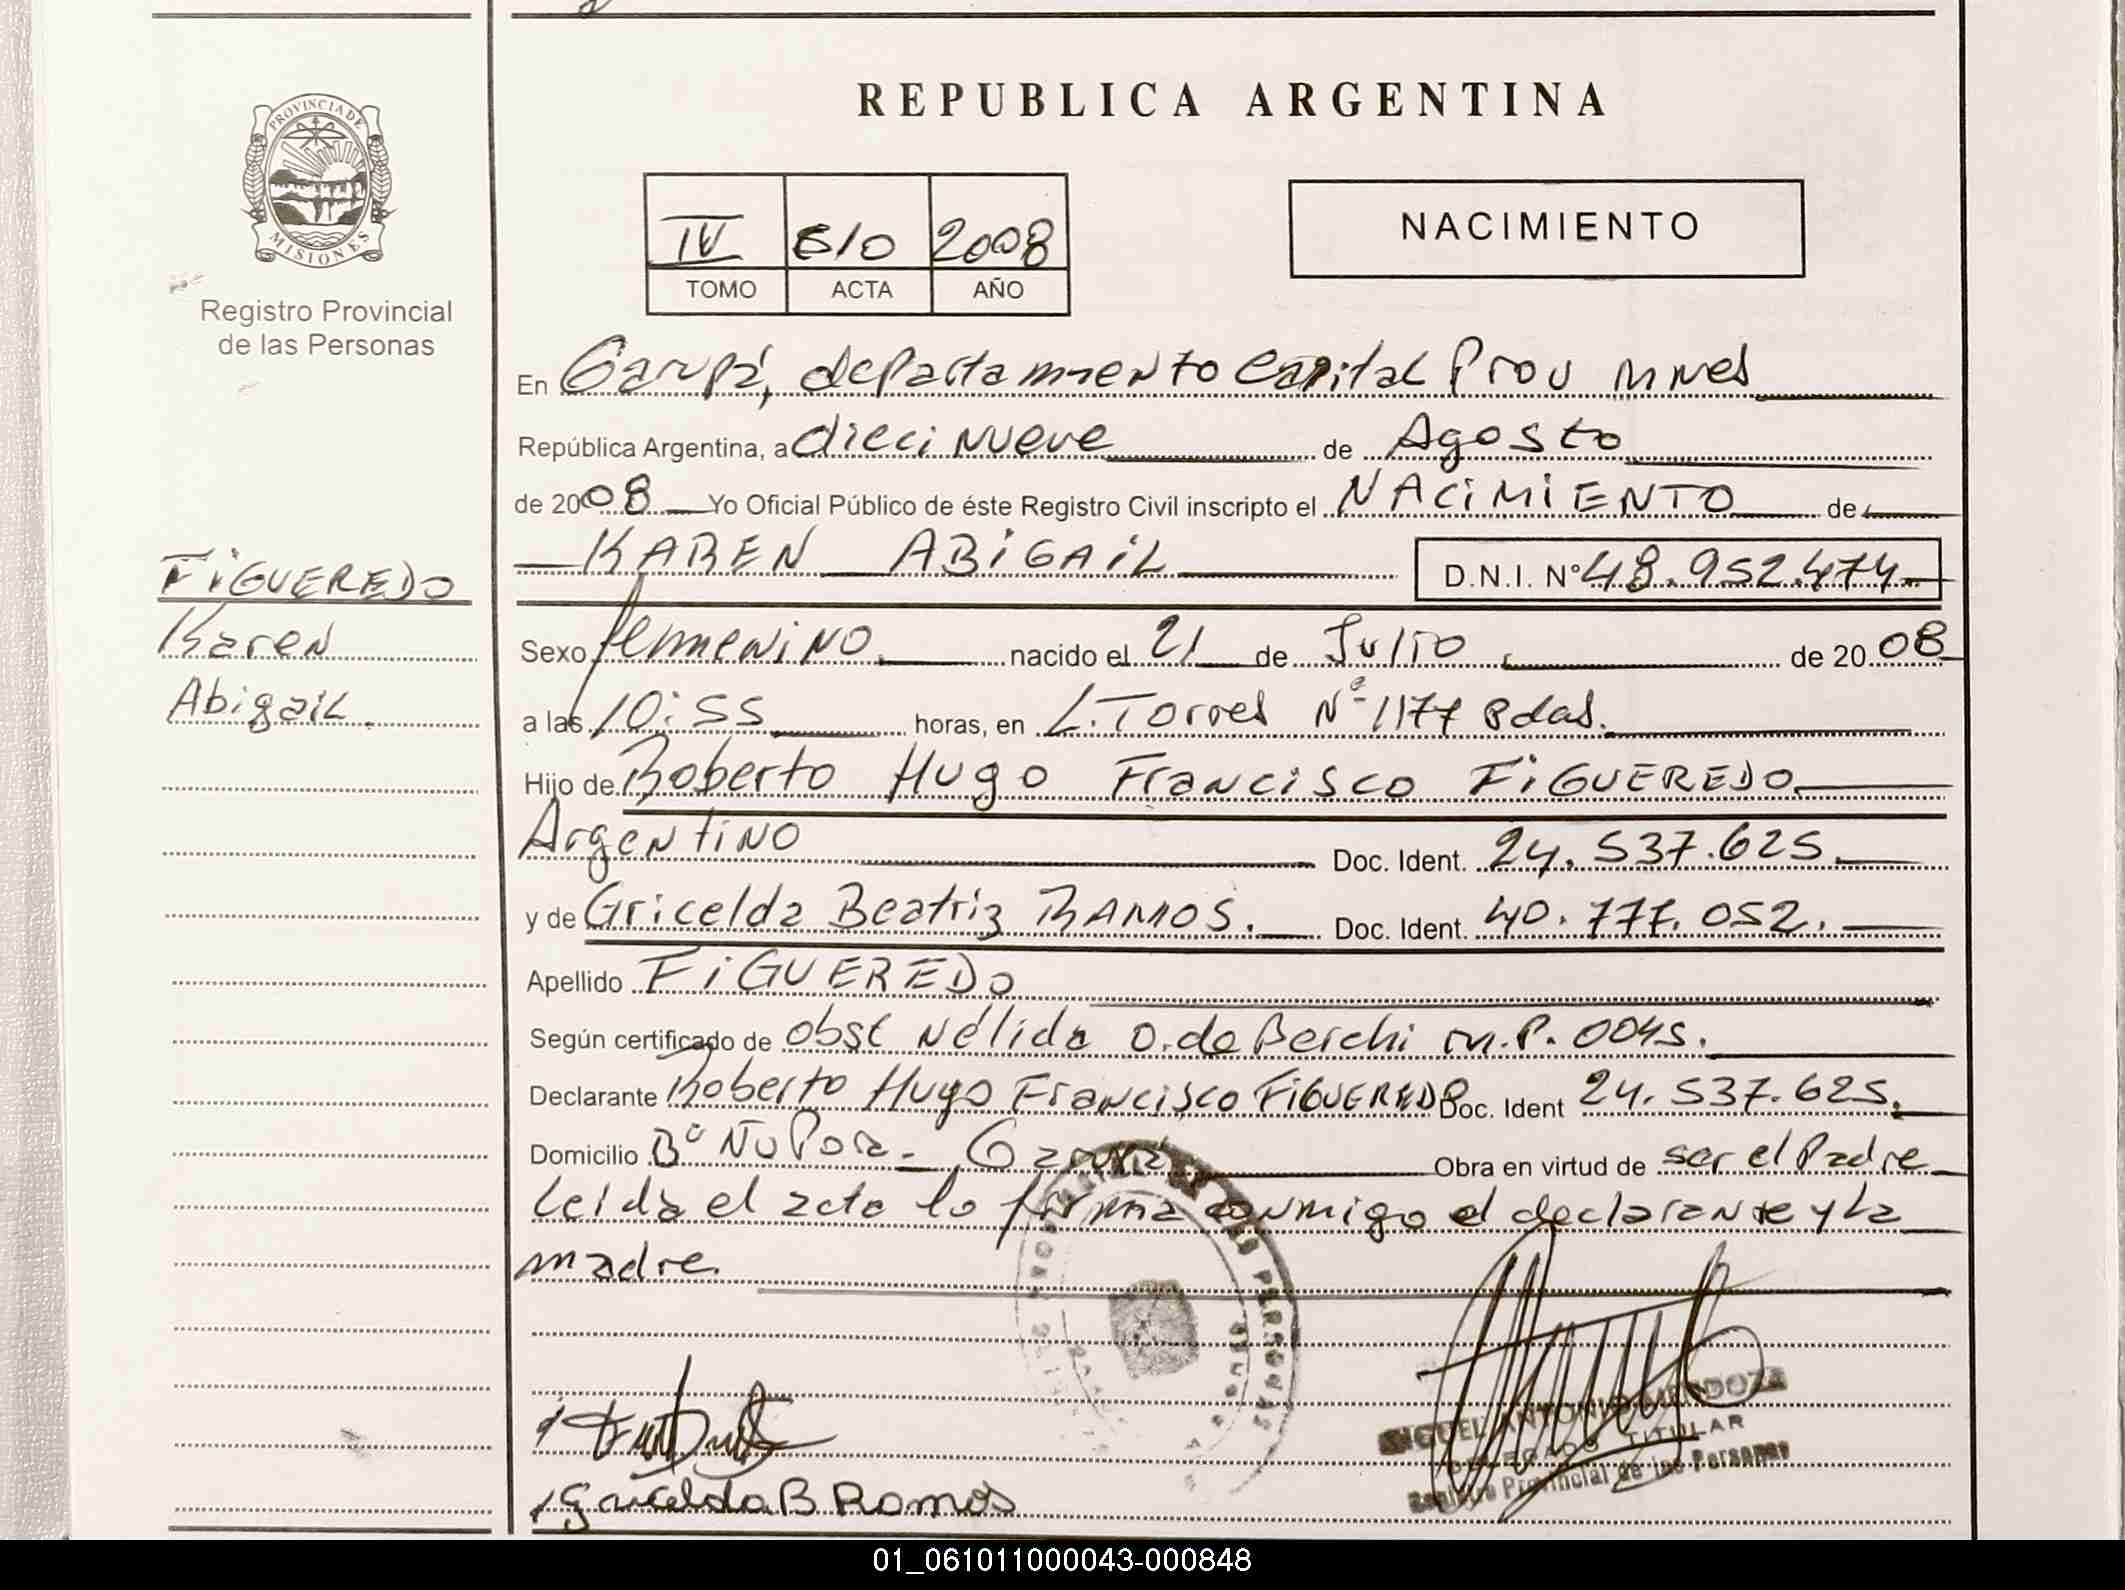 REPUBLICA ARGENTINA
PROVINCIA DE
MISIONES
Registro Provincial
de las Personas
IV 610 2008
TOMO ACTA AÑO
NACIMIENTO
En Garupá, departamento Capital Prov Mnes
República Argentina, a dieci nueve de Agosto
de 2008 Yo Oficial Público de éste Registro Civil inscripto el NACIMIENTO de
KAREN ABIGAIL D.N.I. Nº 48.952.474
FIGUEREDO
Karen
Abigail.
Sexo femenino nacido el 21 de Julio de 2008
a las 10:55 horas, en L. Torres Nº 1177 Pdas.
Hijo de Roberto Hugo Francisco FIGUEREDO
Argentino Doc. Ident. 24.537.625.
y de Gricelda Beatriz RAMOS. Doc. Ident. 40.777.052.
Apellido FIGUEREDO
Según certificado de obst Nélida O. de Berchi M.P. 0045.
Declarante Roberto Hugo Francisco FIGUEREDO Doc. Ident 24.537.625.
Domicilio Bº Ñu Pora - Garupá Obra en virtud de ser el Padre
Leida el acta lo firma conmigo el declarante y la
madre.
MIGUEL ANTONIO MENDOZA
DELEGADO TITULAR
Registro Provincial de las Personas
Gricelda B Ramos
01_061011000043-000848